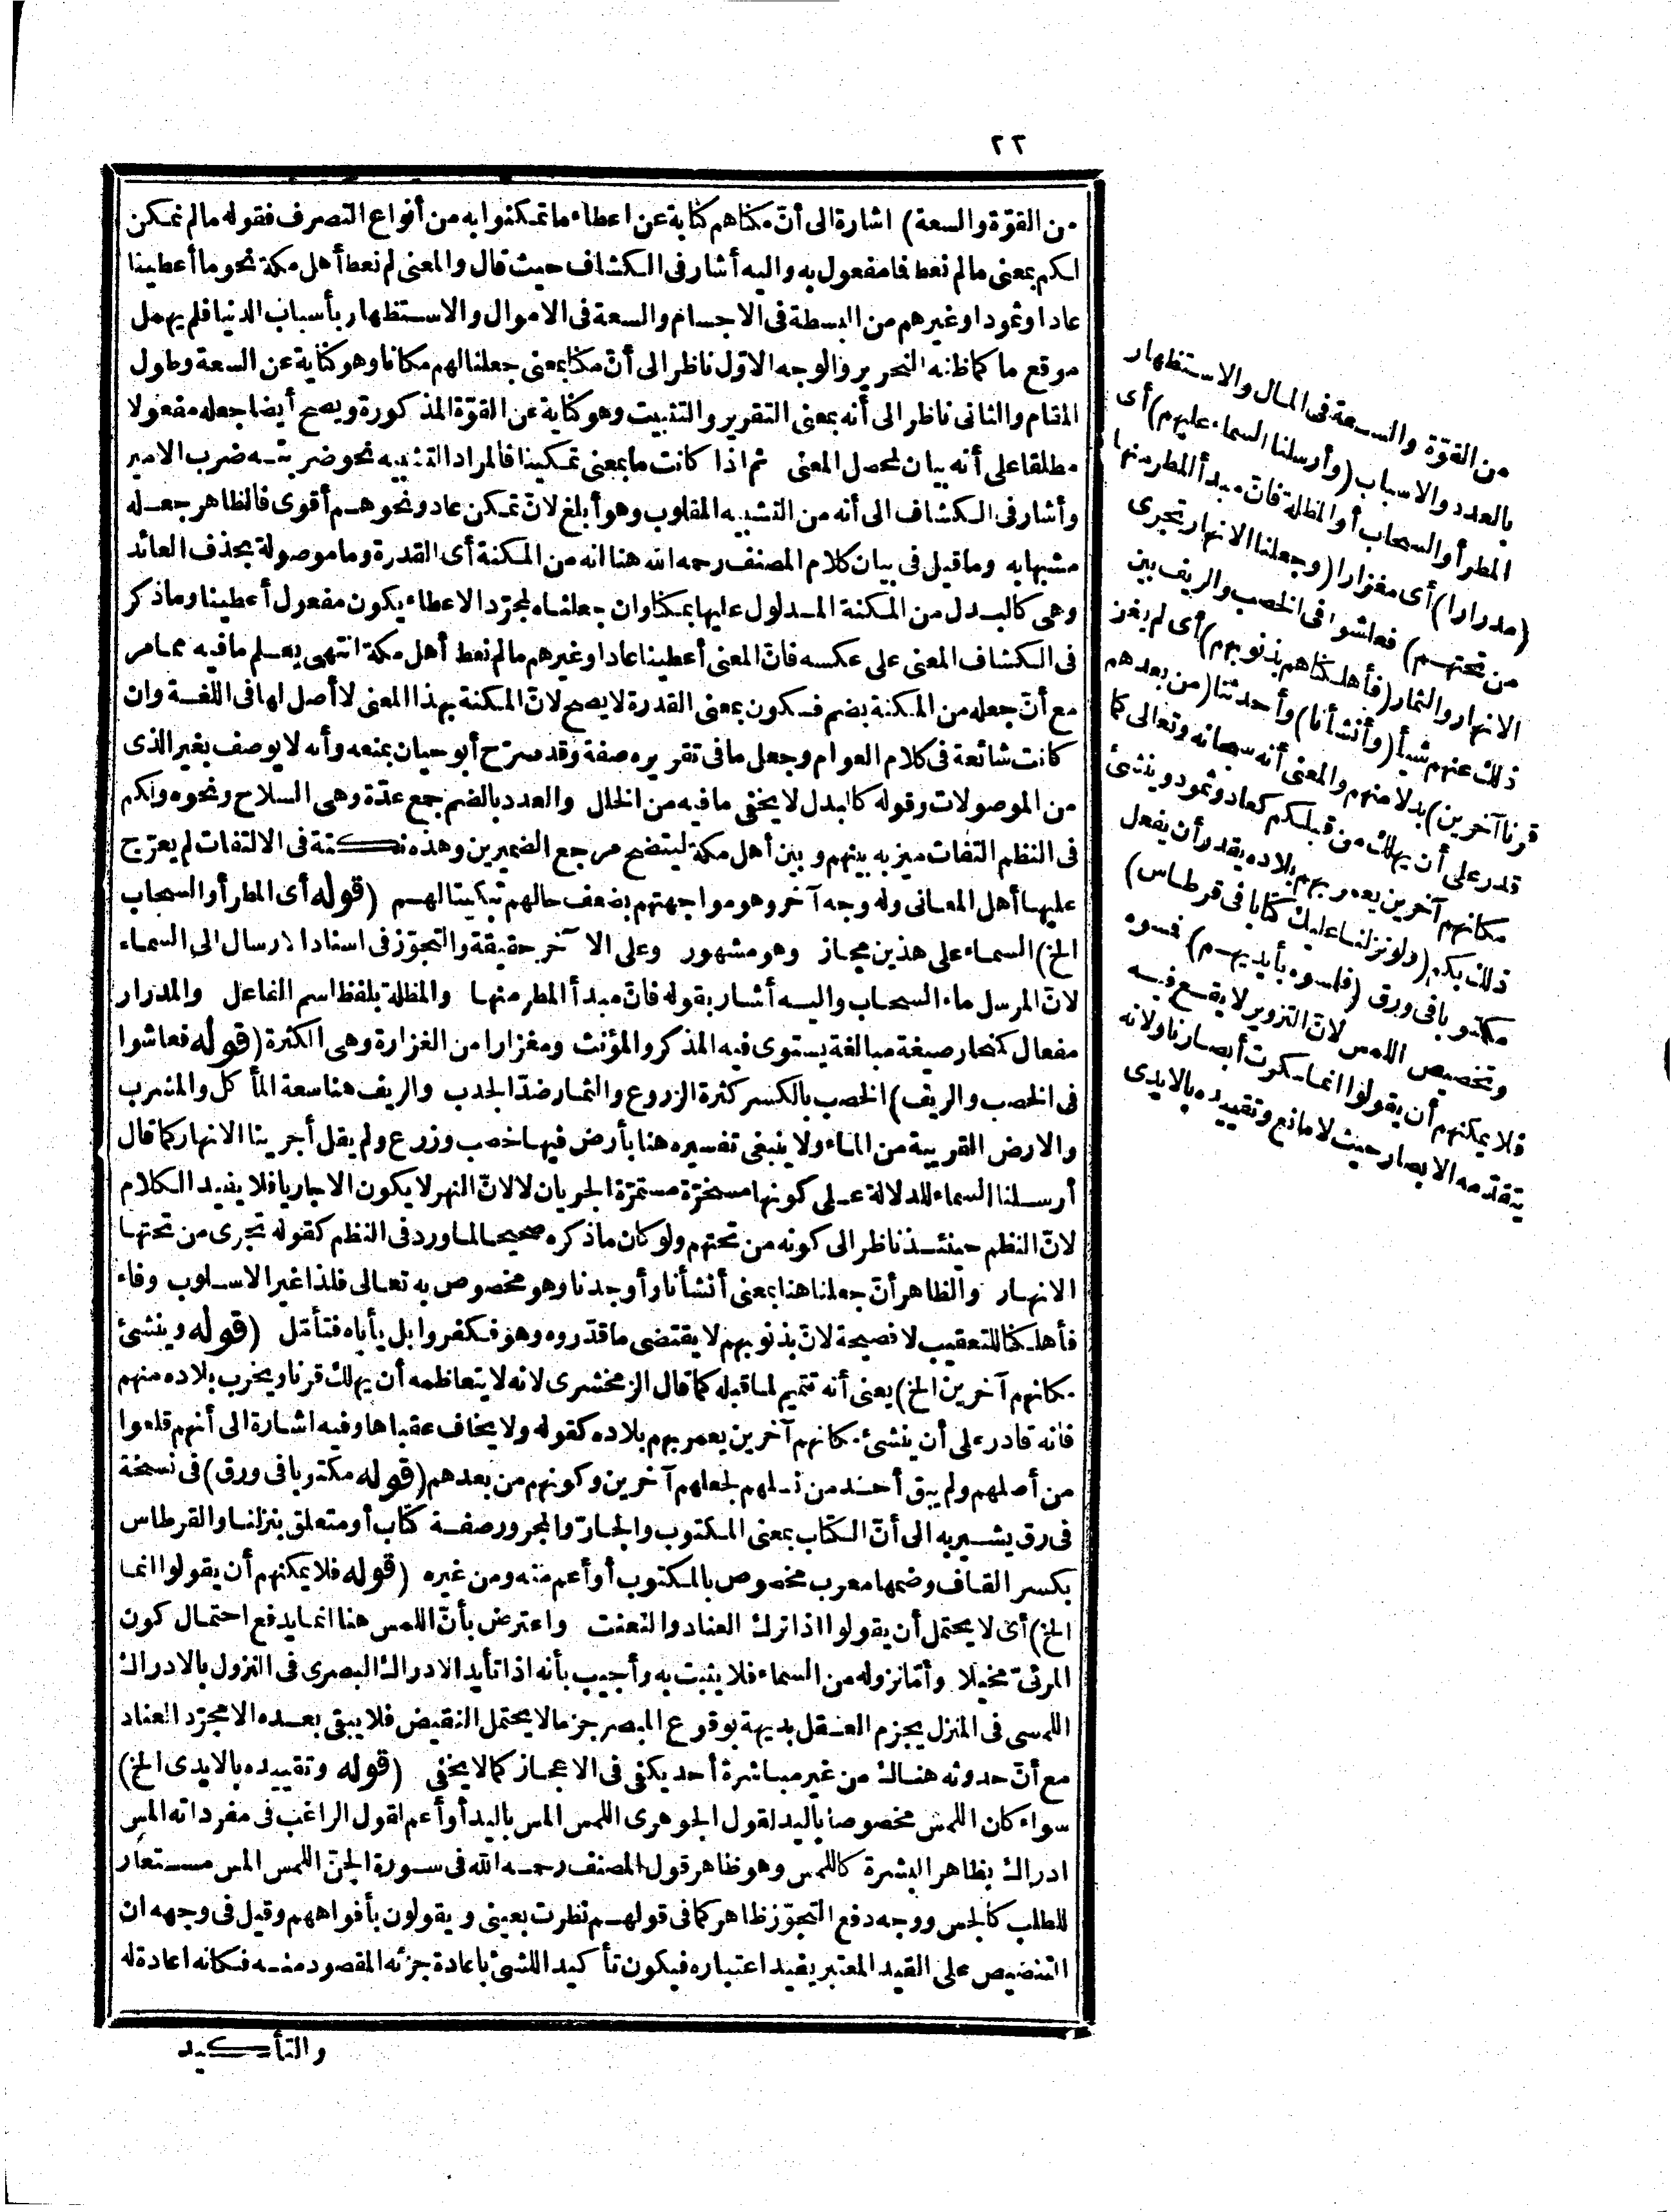 ٢٢
من القوّة والسعة) اشارة الى أنّ مكناهم كناية عن اعطاء ما تمكنوا به من أنواع التصرف فقوله ما لم نمكن
لكم بمعنى ما لم نعط فما مفعول به واليه أشار فى الكشاف حيث قال والمعنى لم نعط أهل مكة نحو ما أعطينا
عادا وثمودا وغيرهم من البسطة فى الاجسام والسعة فى الاموال والاستظهار بأسباب الدنيا فلم يهمل
موقع ما كما ظنه النحرير والوجه الاوّل ناظر الى أنّ مكنا بمعنى جعلنا لهم مكانا وهو كناية عن السعة وطول
المقام والثانى ناظر الى أنه بمعنى التقرير والتثبيت وهو كناية عن القوّة المذكورة ويصح أيضا جعله مفعولا
مطلقا على أنه بيان لمحصل المعنى ثم اذا كانت ما بمعنى تمكينا فالمراد التشبيه نحو ضربته ضرب الامير
وأشار فى الكشاف الى أنه من التشبيه المقلوب وهو أبلغ لانّ تمكن عاد ونحوهم أقوى فالظاهر جعله
مشبها به وما قيل فى بيان كلام المصنف رحمه الله هنا انه من المكنة أى القدرة وما موصولة بحذف العائد
وهى كالبدل من المكنة المدلول عليها بمكنا وان جعلناه لمجرّد الاعطاء يكون مفعول أعطينا وما ذكر
فى الكشاف المعنى على عكسه فانّ المعنى أعطينا عادا وغيرهم ما لم نعط أهل مكة انتهى يعلم ما فيه مما مر
مع أنّ جعله من المكنة بضم فسكون بمعنى القدرة لا يصح لانّ المكنة بهذا المعنى لا أصل لها فى اللغة وان
كانت شائعة فى كلام العوام وجعل ما فى تقريره صفة وقد صرّح أبو حيان بمنعه وأنه لا يوصف بغير الذى
من الموصولات وقوله كالبدل لا يخفى ما فيه من الخلل والعدد بالضم جمع عدّة وهى السلاح ونحوه ولكم
فى النظم التفات ميز به بينهم وبين أهل مكة ليتضح مرجع الضميرين وهذه نكتة فى الالتفات لم يعرّج
عليها أهل المعانى وله وجه آخر وهو مواجهتهم بضعف حالهم تبكيتا لهم (قوله أى المطر أو السحاب
الخ) السماء على هذين مجاز وهو مشهور وعلى الآخر حقيقة والتجوّز فى اسناد الارسال الى السماء
لانّ المرسل ماء السحاب واليه أشار بقوله فانّ مبدأ المطر منها والمظلة بلفظ اسم الفاعل والمدرار
مفعال كمنحار صيغة مبالغة يستوى فيه المذكر والمؤنث ومغزارا من الغزارة وهى الكثرة (قوله فعاشوا
فى الخصب والريف) الخصب بالكسر كثرة الزروع والثمار ضدّ الجدب والريف هنا سعة المأكل والمشرب
والارض القريبة من الماء ولا ينبغى تفسيره هنا بأرض فيها خصب وزرع ولم يقل أجرينا الانهار كما قال
أرسلنا السماء للدلالة على كونها مسخرة مستمرّة الجريان لا لانّ النهر لا يكون الا جاريا فلا يفيد الكلام
لانّ النظم حينئذ ناظر الى كونه من تحتهم ولو كان ما ذكره صحيحا لما ورد فى النظم كقوله تجرى من تحتها
الانهار والظاهر أنّ جعلنا هنا بمعنى أنشأنا وأوجدنا وهو مخصوص به تعالى فلذا غير الاسلوب وفاء
فأهلكنا للتعقيب لا فصيحة لانّ بذنوبهم لا يقتضى ما قدّروه وهو فكفروا بل يأباه فتأمّل (قوله وينشئ
مكانهم آخرين الخ) يعنى أنه تتميم لما قبله كما قال الزمخشرى لانه لا يتعاظمه أن يهلك قرنا ويخرب بلاده منهم
فانه قادر على أن ينشئ مكانهم آخرين يعمر بهم بلاده كقوله ولا يخاف عقباها وفيه اشارة الى أنهم قلعوا
من أصلهم ولم يبق أحد من نسلهم لجعلهم آخرين وكونهم من بعدهم (قوله مكتوبا فى ورق) فى نسخة
فى رق يشير به الى أنّ الكتاب بمعنى المكتوب والجارّ والمجرور صفة كتاب أو متعلق بنزلنا والقرطاس
بكسر القاف وضمها معرب مخصوص بالمكتوب أو أعم منه ومن غيره (قوله فلا يمكنهم أن يقولوا انما
الخ) أى لا يحتمل أن يقولوا اذا ترك العناد والتعنت واعترض بأنّ اللمس هنا انما يدفع احتمال كون
المرئىّ مخيلا وأمّا نزوله من السماء فلا يثبت به وأجيب بأنه اذا تأيد الادراك البصرى فى النزول بالادراك
اللمسى فى المنزل يجزم العقل بديهة بوقوع المبصر جزما لا يحتمل النقيض فلا يبقى بعده الا مجرّد العناد
مع أنّ حدوثه هناك من غير مباشرة أحد يكفى فى الاعجاز كما لا يخفى (قوله وتقييده بالايدى الخ)
سواء كان اللمس مخصوصا باليد لقول الجوهرى اللمس المس باليد أو أعم لقول الراغب فى مفرداته المس
ادراك بظاهر البشرة كاللمس وهو ظاهر قول المصنف رحمه الله فى سورة الجنّ اللمس المس مستعار
للطلب كالجس ووجه دفع التجوّز ظاهر كما فى قولهم نظرت بعينى ويقولون بأفواههم وقيل فى وجهه ان
التنصيص على القيد المعتبر يفيد اعتباره فيكون تأكيد اللشئ باعادة جزئه المقصود منه فكانه اعادة له
والتأكيد
من القوّة والسعة فى المال والاستظهار
بالعدد والاسباب (وأرسلنا السماء عليهم) أى
المطر أو السحاب أو المظلة فانّ مبدأ المطر منها
(مدرارا) أى مغزارا (وجعلنا الانهار تجرى
من تحتهم) فعاشوا فى الخصب والريف بين
الانهار والثمار (فأهلكناهم بذنوبهم) أى لم يغن
ذلك عنهم شيأ (وأنشأنا) وأحدثنا (من بعدهم
قرنا آخرين) بدلا منهم والمعنى أنه سبحانه وتعالى كما
قدر على أن يهلك من قبلكم كعاد وثمود وينشئ
مكانهم آخرين يعمر بهم بلاده يقدر أن يفعل
ذلك بكم (ولو نزلنا عليك كتابا فى قرطاس)
مكتوبا فى ورق (فلمسوه بأيديهم) فمسوه
وتخصيص اللمس لانّ التزوير لا يقع فيه
فلا يمكنهم أن يقولوا انما سكرت أبصارنا ولانه
يتقدّمه الابصار حيث لا مانع وتقييده بالايدى